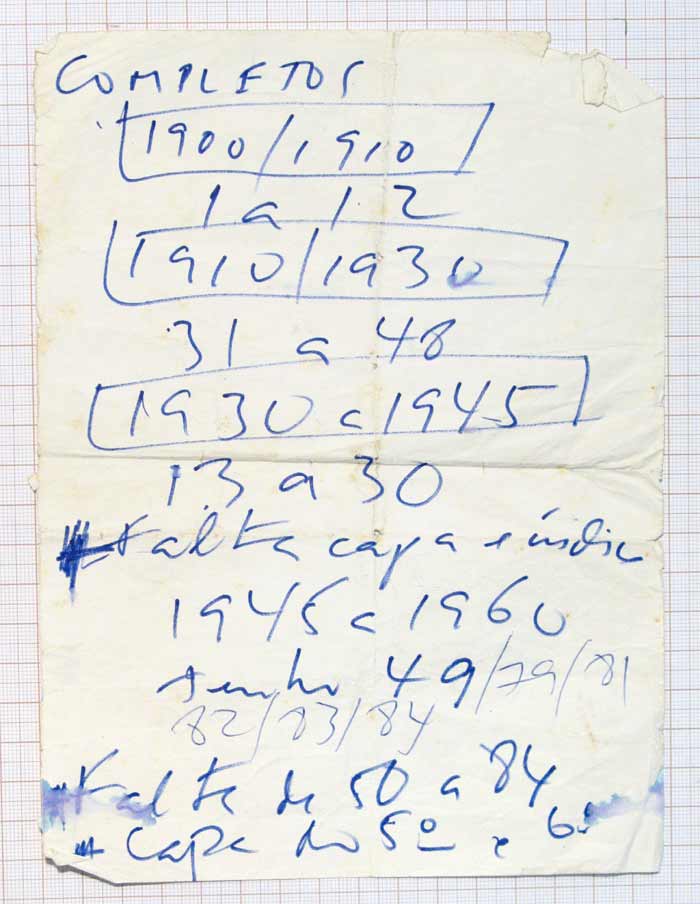 COMPLETOS
1900/1910
1 a 12
1910/1930
31 a 48
1930 a 1945
13 a 30
# Falta capa e índice
1945 a 1960
tenho 49/79/81
82/83/84
# Falta de 50 a 84
# Capa do 5º e 6º